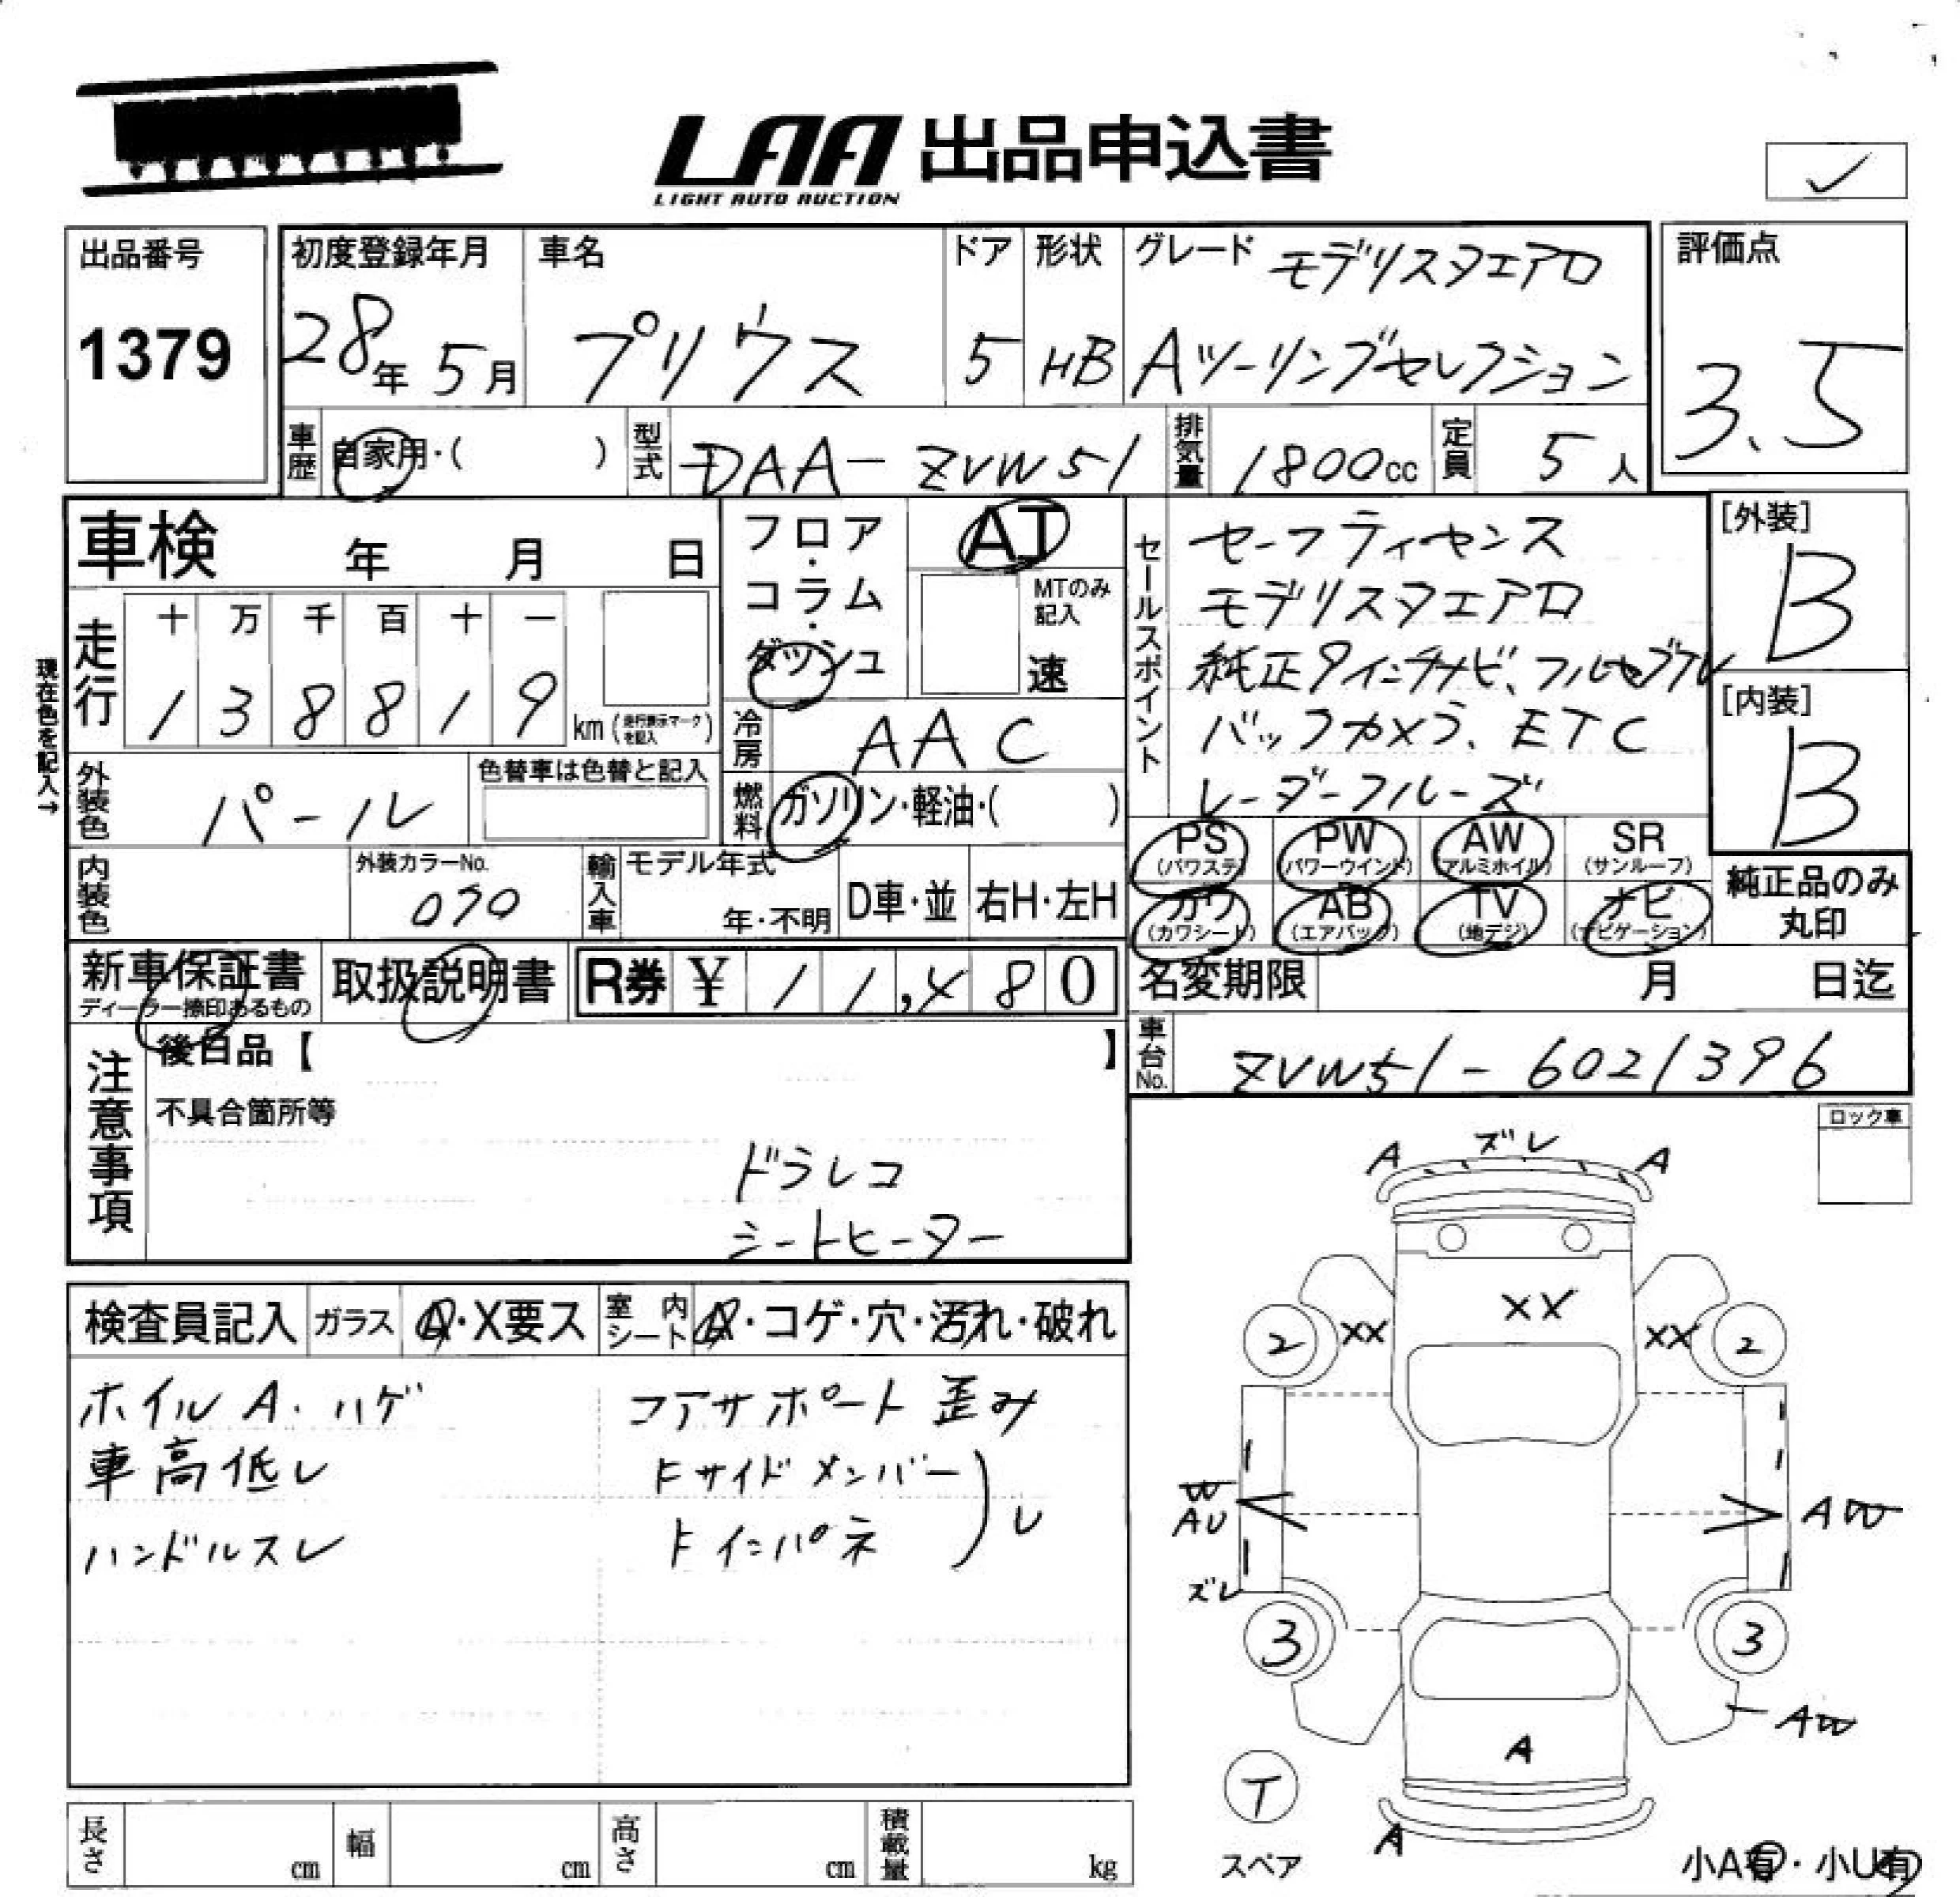 LAA 出品申込書
LIGHT AUTO AUCTION
✓
出品番号
1379
初度登録年月
28年 5月
車名
プリウス
ドア
5
形状
HB
グレード モデリスタエアロ
Aツーリングセレクション
評価点
3.5
車歴
自家用・( )
型式
DAA-ZVW51
排気量
1800cc
定員
5人
車検 年 月 日
フロア・コラム・ダッシュ
AT
MTのみ記入
速
セールスポイント
セーフティセンス
モデリスタエアロ
純正9インチナビ、フルセグTV
バックカメラ、ETC
レーダークルーズ
[外装]
B
[内装]
B
現在色を記入→
走行
十 万 千 百 十 一
1 3 8 8 1 9
km (走行表示マークを記入)
冷房
AAC
外装色
パール
色替車は色替と記入
燃料
ガソリン・軽油・( )
内装色
外装カラーNo.
070
輸入車
モデル年式
年・不明
D車・並
右H・左H
PS (パワステ)
PW (パワーウインド)
AW (アルミホイル)
SR (サンルーフ)
カワ (カワシート)
AB (エアバック)
TV (地デジ)
ナビ (ナビゲーション)
純正品のみ
丸印
新車保証書
ディーラー捺印あるもの
取扱説明書
R券 ¥ 11,480
名変期限 月 日迄
車台No.
ZVW51-6021396
注意事項
後日品【 】
不具合箇所等
ドラレコ
シートヒーター
ロック車
検査員記入
ガラス
A・X要ス
室内シート
A・コゲ・穴・汚れ・破れ
ホイルA・ハゲ
車高低し
ハンドルスレ
コアサポート歪み
Fサイドメンバー
Fインパネ
) し
A ズレ A
XX
2 XX XX 2
W
AU
AW
ズレ
3 3
AW
A
T
スペア
A
小A有・小U有
長さ cm
幅 cm
高さ cm
積載量 kg